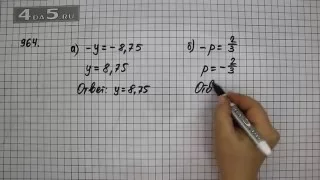 4DA5.RU
964.
а) -y = -8,75
y = 8,75
Ответ: y = 8,75
б) -p = 2/3
p = -2/3
Отв